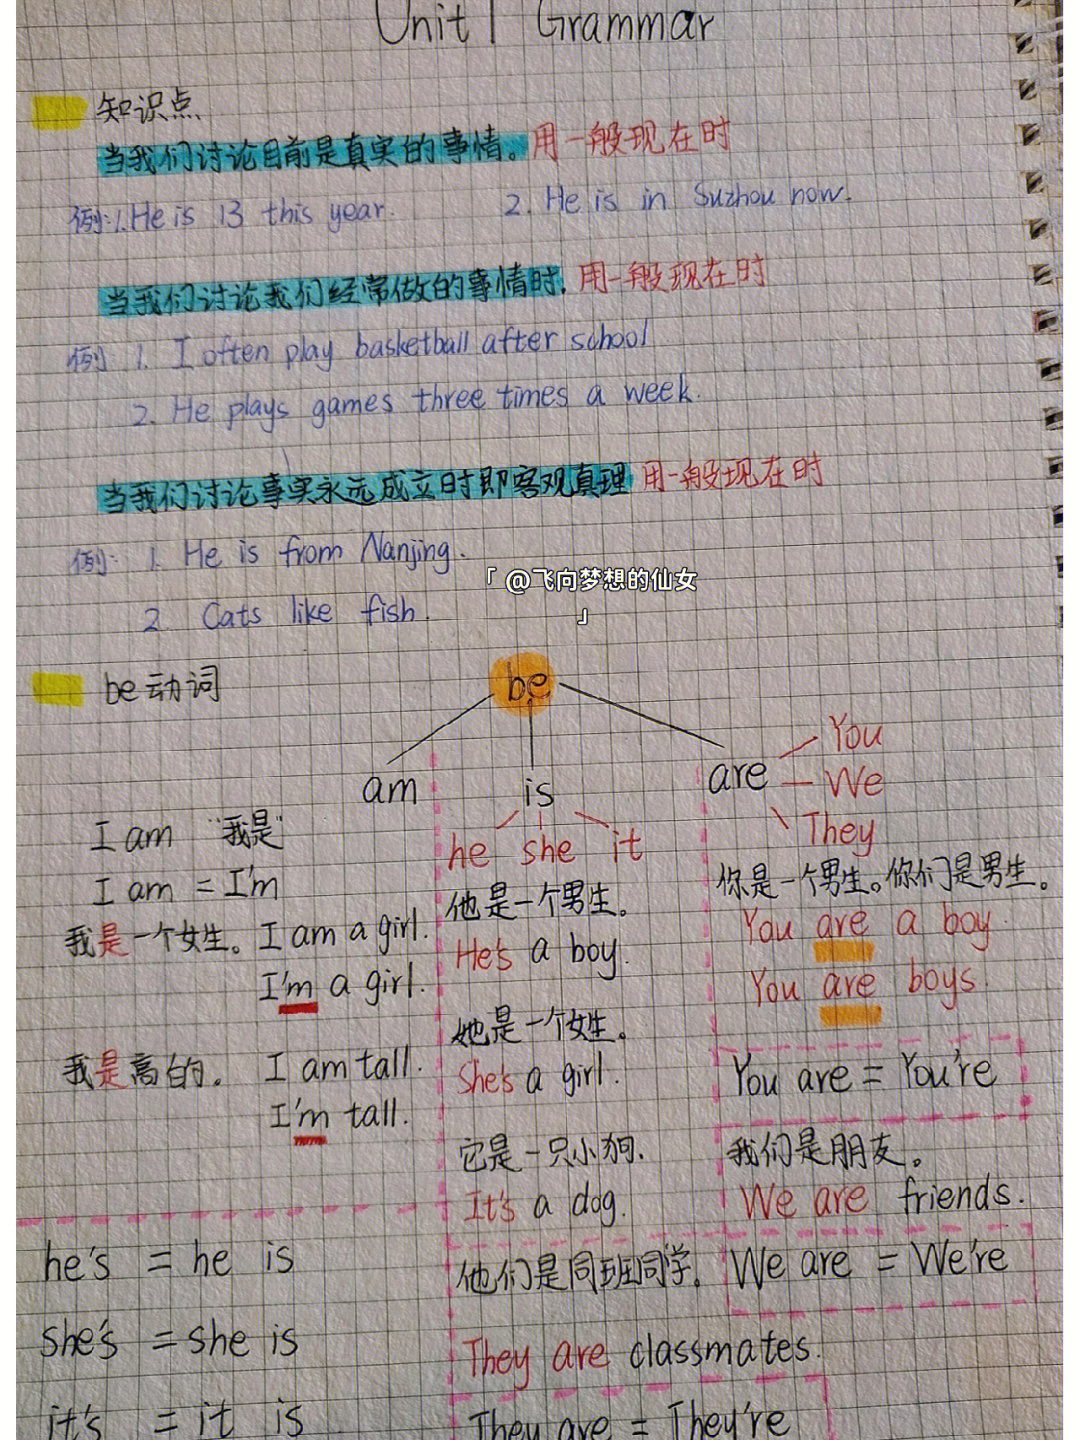 Unit 1 Grammar
知识点
当我们讨论目前是真实的事情。用一般现在时
例:1.He is 13 this year. 2. He is in Suzhou now.
当我们讨论我们经常做的事情时,用一般现在时
例: 1. I often play basketball after school
2. He plays games three times a week.
当我们讨论事实永远成立时即客观真理 用一般现在时
例: 1. He is from Nanjing.
「 @飞向梦想的仙女
」
2 Cats like fish.
be动词
be
am
is
are
You
We
They
he she it
I am "我是"
I am = I'm
我是一个女生。I am a girl.
I'm a girl.
我是高的。 I am tall.
I'm tall.
他是一个男生。
He's a boy.
她是一个女生。
She's a girl.
它是一只小狗.
It's a dog.
你是一个男生。你们是男生。
You are a boy.
You are boys.
You are = You're
我们是朋友。
We are friends.
We are = We're
he's = he is
she's = she is
it's = it is
他们是同班同学.
They are classmates.
They are = They're